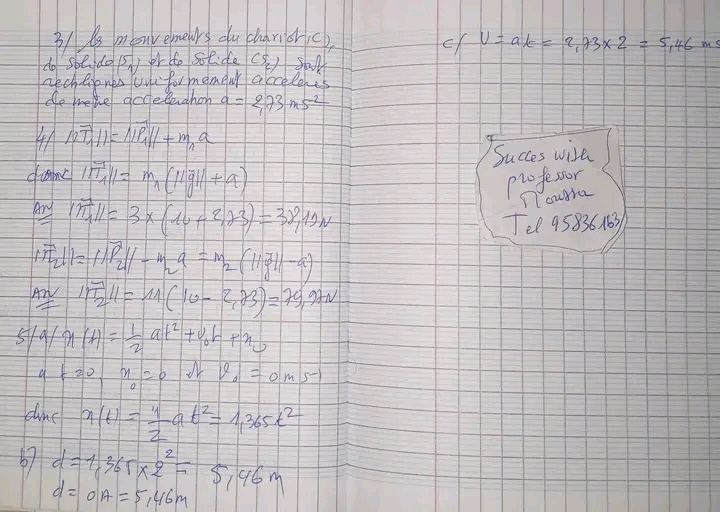 3/ les mouvements du chariot (C),
de solide (S₁) et de solide (S₂) sont
rectilignes uniformement acceleres
de meme acceleration a = 2,73 ms²
4/ ||T⃗₁|| = ||P⃗₁|| + m₁a
donc ||T⃗₁|| = m₁(||g⃗|| + a)
AN ||T⃗₁|| = 3 × (10 + 2,73) = 38,19N
||T⃗₂|| = ||P⃗₂|| - m₂a = m₂(||g⃗|| - a)
AN ||T⃗₂|| = 11(10 - 2,73) = 79,97N
5/a/ x(t) = 1/2 at² + v₀t + x₀
à t=0, x₀=0 et v₀ = 0 ms⁻¹
donc x(t) = 1/2 at² = 1,365t²
b) d = 1,365 × 2² = 5,46 m
d = OA = 5,46m
c/ V = at = 2,73 × 2 = 5,46 ms
Succes with
professor
Moussa
Tel 95836163